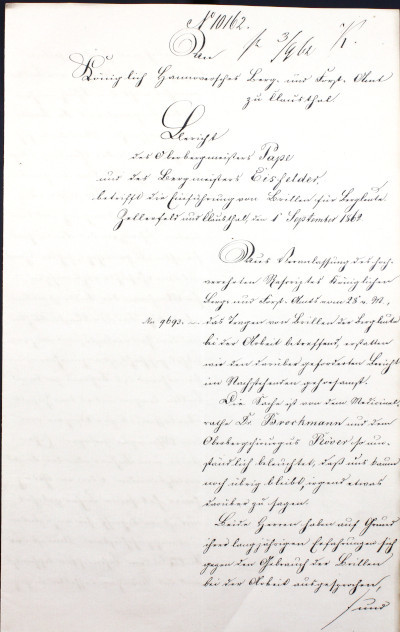 No 10162.
An pr 3/9 62 K.
Königlich Hannoversches Berg- und Forst-Amt
zu Clausthal
Bericht
des Oberbergmeisters Pape
und des Bergmeisters Eisfelder,
betrifft die Einführung von Brillen für Bergleute.
Zellerfeld und Clausthal, den 1 September 1862
Aus Veranlassung des hoch-
verehrten Rescriptes Königlichen
Berg- und Forst-Amts vom 28 v. M.,
No 9693. das Tragen von Brillen der Bergleute
bei der Arbeit betreffend, erstatten
wir den darüber geforderten Bericht
im Nachstehenden gehorsamst.
Die Sache ist von dem Medicinal-
rathe Dr Brockmann und dem
Oberbergchirurgus Röver so um-
ständlich beleuchtet, daß uns kaum
noch übrig bleibt, irgend etwas
darüber zu sagen.
Beide Herren haben auf Grund
ihrer langjährigen Erfahrungen sich
gegen den Gebrauch der Brillen
bei der Arbeit ausgesprochen,
und